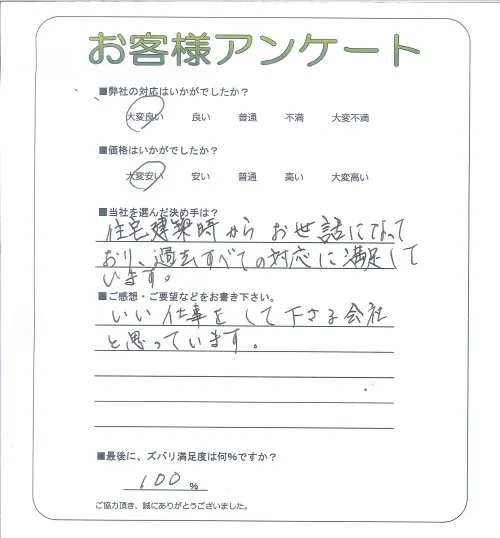 お客様アンケート
■弊社の対応はいかがでしたか？
大変良い 良い 普通 不満 大変不満
■価格はいかがでしたか？
大変安い 安い 普通 高い 大変高い
■当社を選んだ決め手は？
住宅建築時からお世話になって
おり、過去すべての対応に満足して
います。
■ご感想・ご要望などをお書き下さい。
いい仕事をして下さる会社
と思っています。
■最後に、ズバリ満足度は何%ですか？
100 %
ご協力頂き、誠にありがとうございました。